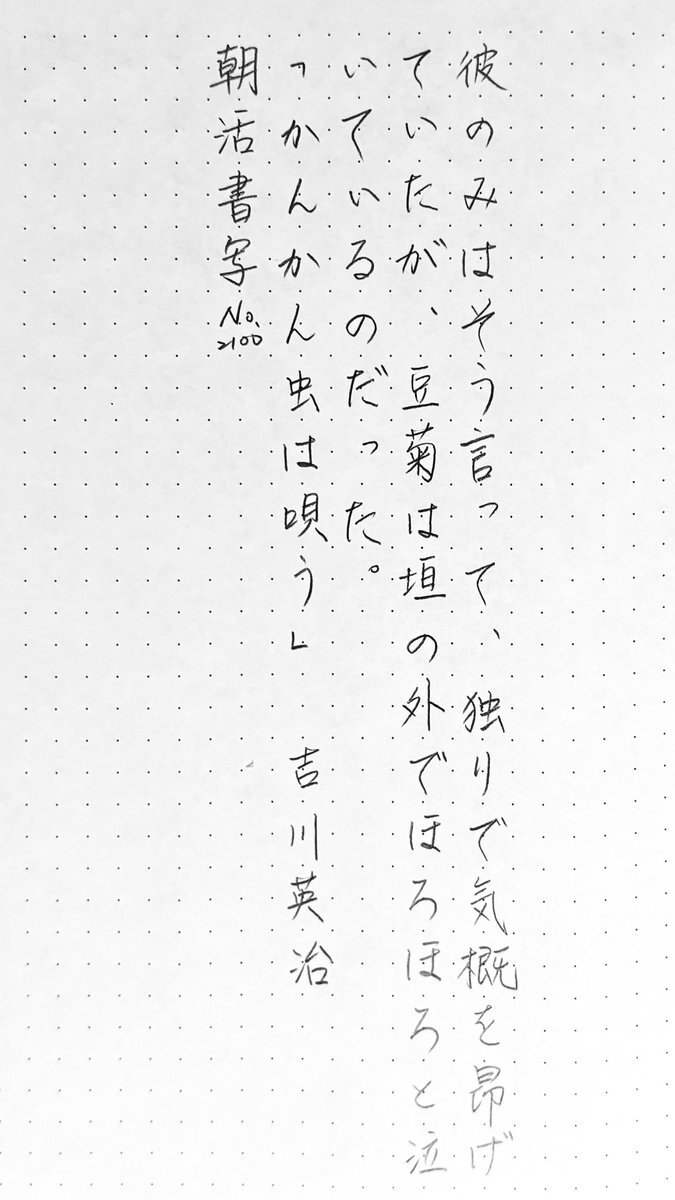 彼のみはそう言って、独りで気概を昂げ
ていたが、豆菊は垣の外でほろほろと泣
いているのだった。
「かんかん虫は唄う」 吉川英治
朝活書写No.2100